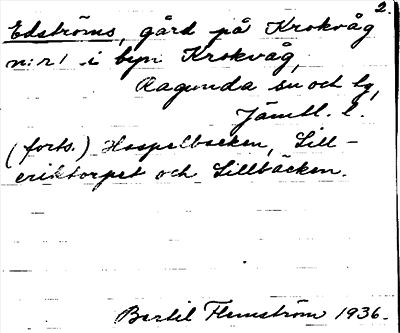 2.
Edströms, gård på Krokvåg
n:r 1 i byn Krokvåg,
Ragunda sn och tg,
Jämtl. l.
(forts.) Haspelbacken, Lill-
eriktorpet och Lillbäcken.
Bertil Flemström 1936.